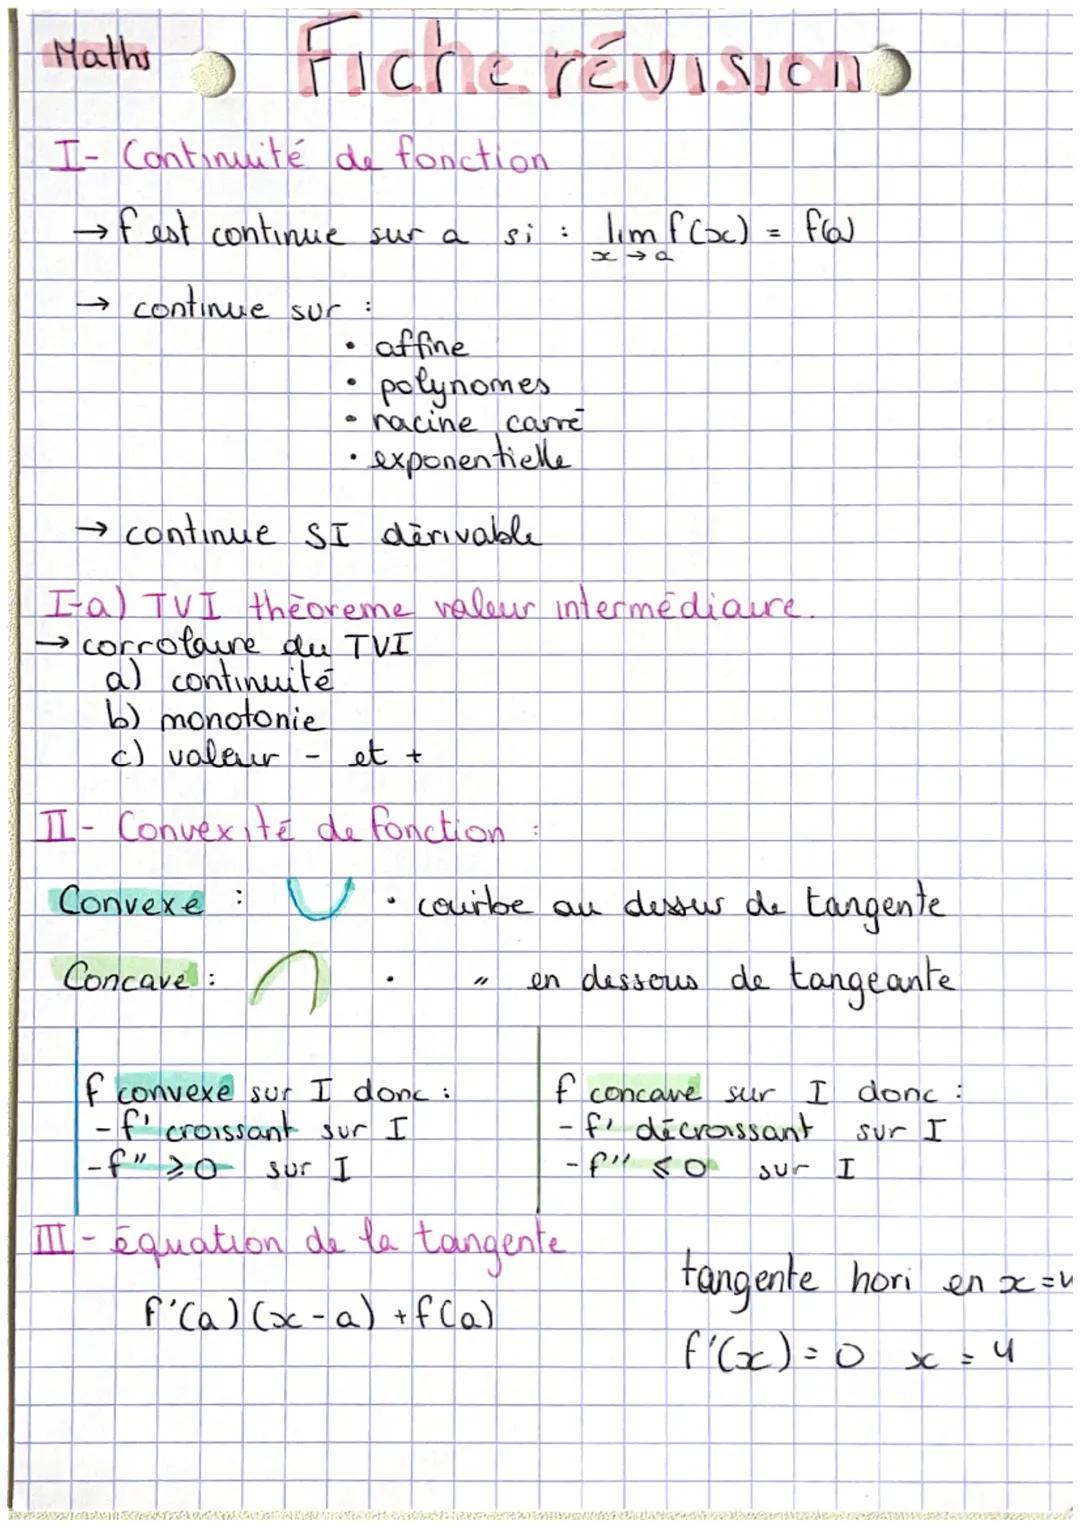 Maths
Fiche révision
I- Continuité de fonction
→ f est continue sur a si : lim f(x) = f(a)
x → a
→ continue sur :
• affine
• polynomes
• racine carré
• exponentielle
→ continue SI dérivable
I-a) TVI théoreme valeur intermédiaire.
→ corrolaire du TVI
a) continuité
b) monotonie
c) valeur - et +
II- Convexité de fonction :
Convexe : • courbe au dessus de tangente
Concave : • " en dessous de tangeante
f convexe sur I donc :
- f' croissant sur I
- f" ⩾ 0 sur I
f concave sur I donc :
- f' décroissant sur I
- f'' ⩽ 0 sur I
III- équation de la tangente
f'(a)(x-a) + f(a)
tangente hori en x = 4
f'(x) = 0 x = 4